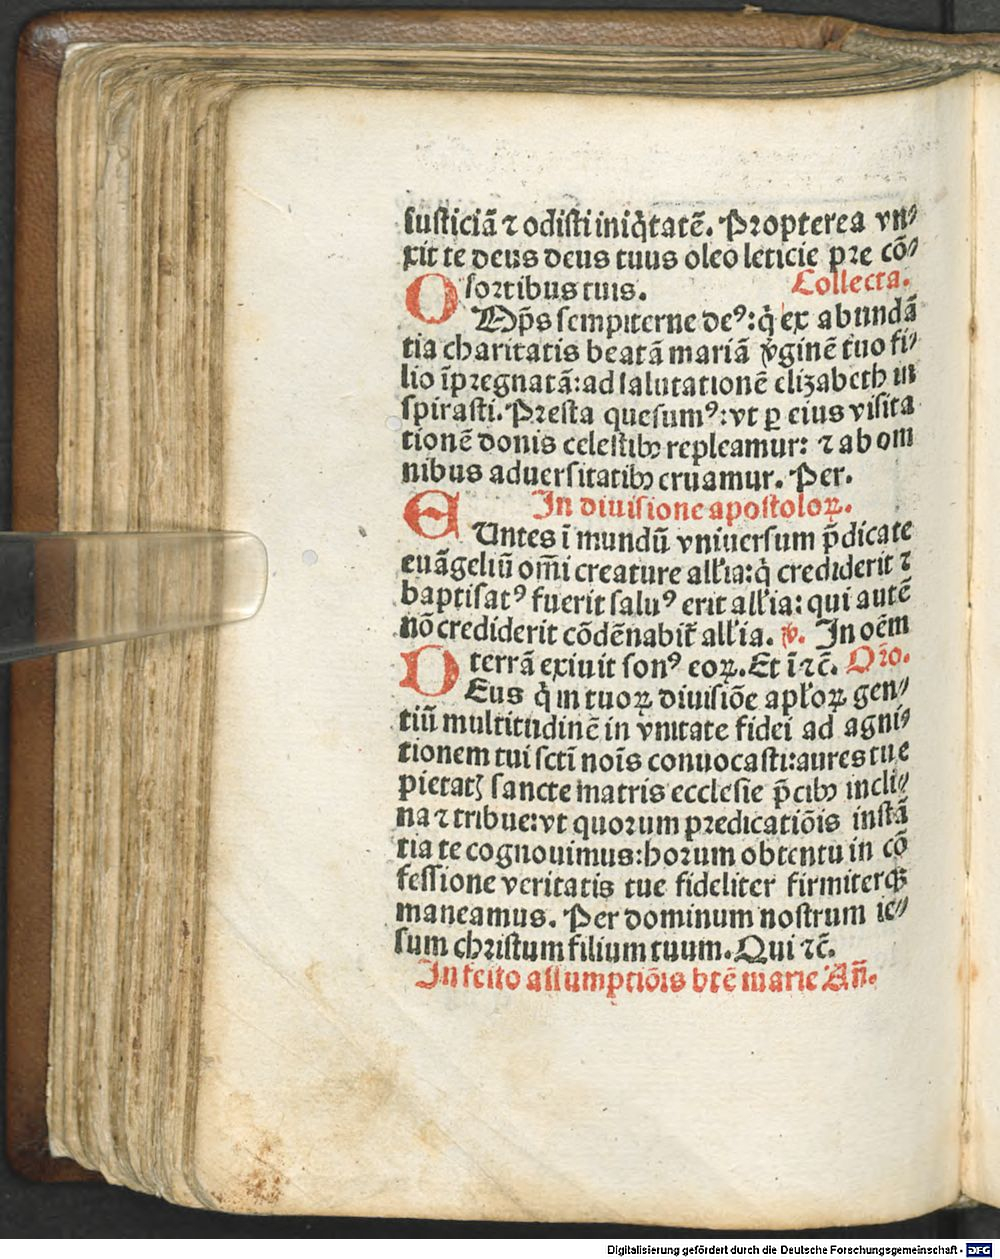 iusticiã ⁊ odisti iniq̃tatẽ. Propterea vn⸗
xit te deus deus tuus oleo leticie pre cõ⸗
sortibus tuis. Collecta.
OMp̃s sempiterne deꝰ: q̃ ex abundã
tia charitatis beatã mariã v̓ginẽ tuo fi⸗
lio ĩpregnatã: ad salutationẽ elizabeth in
spirasti. Presta quesumꝰ: vt ꝑ eius visita
tionẽ donis celestibꝫ repleamur: ⁊ ab om
nibus aduersitatibꝫ eruamur. Per.
In diuisione apostoloꝝ.
EUntes ĩ mundũ vniuersum p̃dicate
euãgeliũ om̃i creature all'ia: q̃ crediderit ⁊
baptisatꝰ fuerit saluꝰ erit all'ia: qui autẽ
nõ crediderit cõdẽnabit̃ all'ia. ℣. In oẽm
terrã exiuit sonꝰ eoꝝ. Et ĩ ⁊c̃. Oro.
DEus q̃ in tuoꝝ diuisiõe apl'oꝝ gen⸗
tiũ multitudinẽ in vnitate fidei ad agni⸗
tionem tui scti noĩs conuocasti: aures tue
pietatꝭ sancte matris ecclesie p̃cibꝫ incli⸗
na ⁊ tribue: vt quorum predicatiõis instã
tia te cognouimus: horum obtentu in cõ
fessione veritatis tue fideliter firmiterqꝫ
maneamus. Per dominum nostrum ie⸗
sum christum filium tuum. Qui ⁊c̃.
In festo assumptiõis btẽ marie Añ.
Digitalisierung gefördert durch die Deutsche Forschungsgemeinschaft - DFG